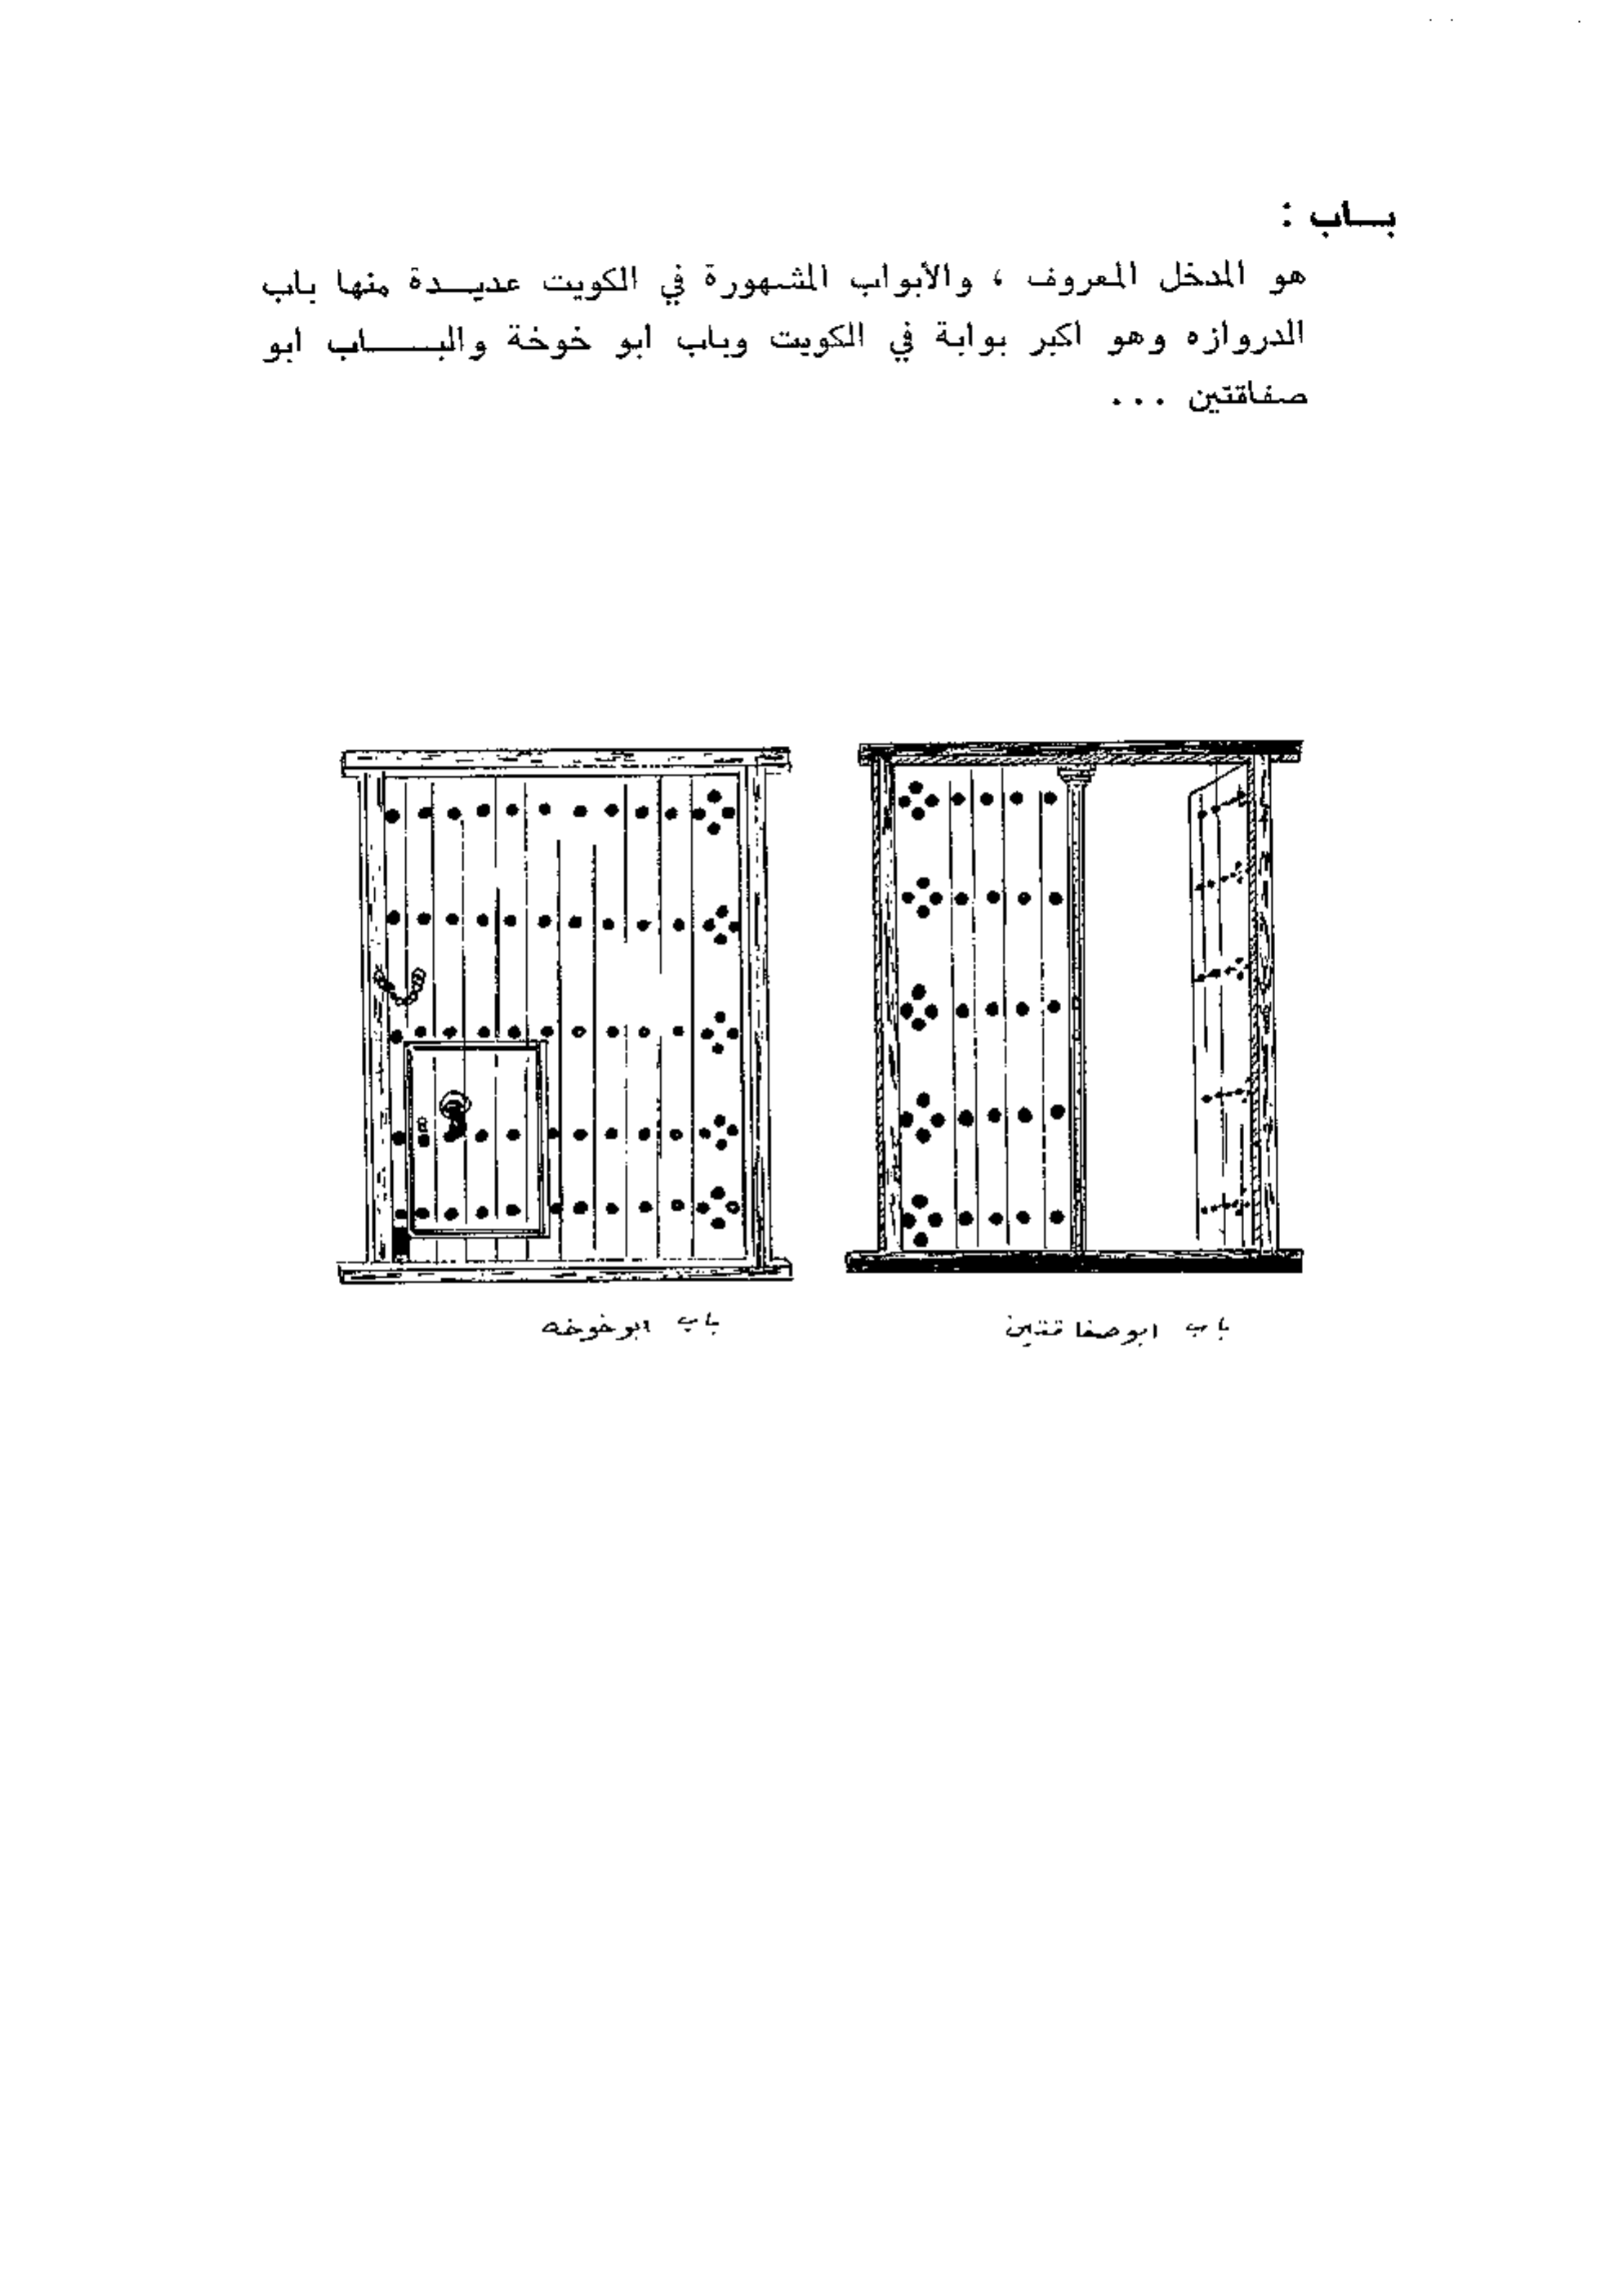 باب :
هو المدخل المعروف ، والأبواب المشهورة في الكويت عديدة منها باب
الدروازه وهو اكبر بوابة في الكويت وباب ابو خوخة والباب ابو
صفاقتين ...
باب ابو صفاقتين
باب ابو خوخه